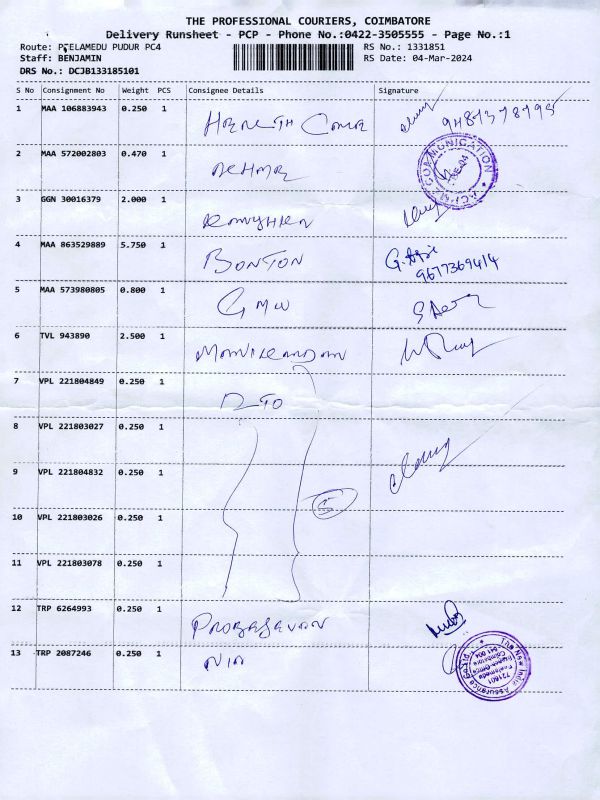 THE PROFESSIONAL COURIERS, COIMBATORE
Delivery Runsheet - PCP - Phone No.:0422-3505555 - Page No.:1
Route: PEELAMEDU PUDUR PC4 RS No.: 1331851
Staff: BENJAMIN RS Date: 04-Mar-2024
DRS No.: DCJB133185101
S No Consignment No Weight PCS Consignee Details Signature
1 MAA 106883943 0.250 1
9487378795
2 MAA 572002803 0.470 1
3 GGN 30016379 2.000 1
4 MAA 863529889 5.750 1 BONTON
9677369414
5 MAA 573980805 0.800 1 GMW
6 TVL 943890 2.500 1
7 VPL 221804849 0.250 1 RTO
8 VPL 221803027 0.250 1
9 VPL 221804832 0.250 1
5
10 VPL 221803026 0.250 1
11 VPL 221803078 0.250 1
12 TRP 6264993 0.250 1
13 TRP 2087246 0.250 1 NIA
The New India Assurance
721601